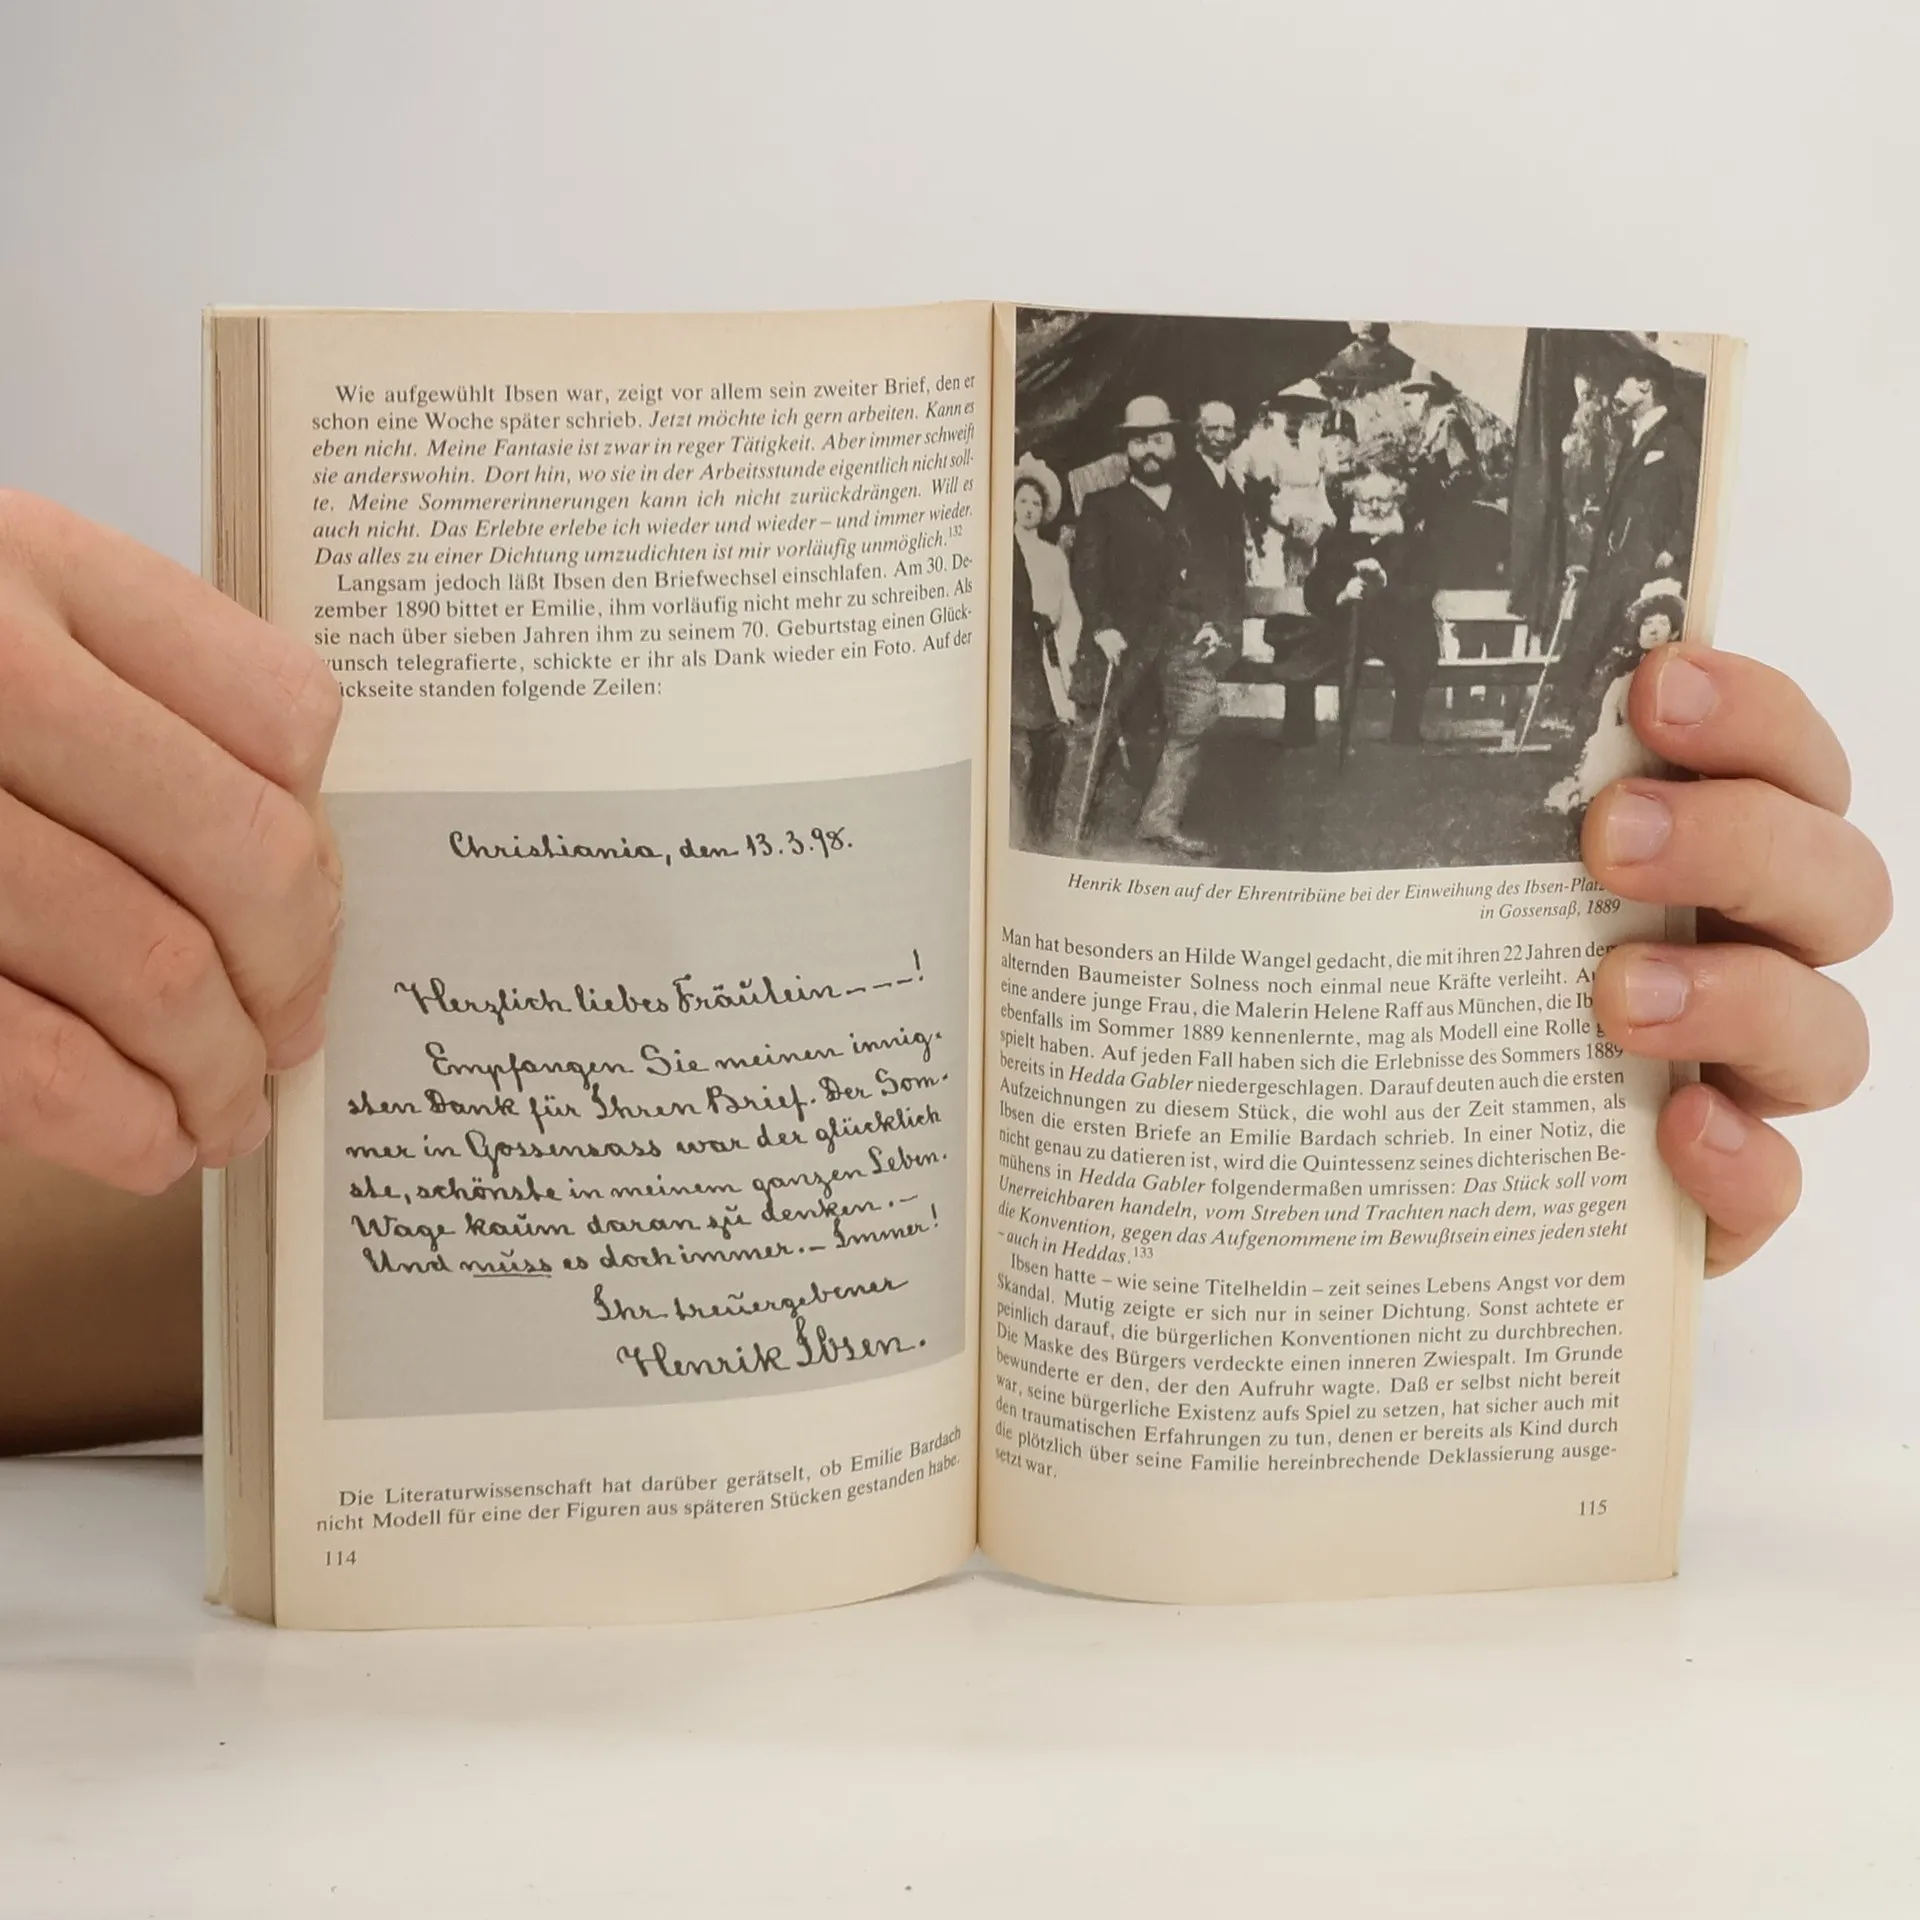 Wie aufgewühlt Ibsen war, zeigt vor allem sein zweiter Brief, den er
schon eine Woche später schrieb. Jetzt möchte ich gern arbeiten. Kann es
eben nicht. Meine Fantasie ist zwar in reger Tätigkeit. Aber immer schweift
sie anderswohin. Dort hin, wo sie in der Arbeitsstunde eigentlich nicht soll-
te. Meine Sommererinnerungen kann ich nicht zurückdrängen. Will es
auch nicht. Das Erlebte erlebe ich wieder und wieder – und immer wieder.
Das alles zu einer Dichtung umzudichten ist mir vorläufig unmöglich.132
Langsam jedoch läßt Ibsen den Briefwechsel einschlafen. Am 30. De-
zember 1890 bittet er Emilie, ihm vorläufig nicht mehr zu schreiben. Als
sie nach über sieben Jahren ihm zu seinem 70. Geburtstag einen Glück-
wunsch telegrafierte, schickte er ihr als Dank wieder ein Foto. Auf der
ückseite standen folgende Zeilen:
Christiania, den 13.3.98.
Herzlich liebes Fräulein – – –!
Empfangen Sie meinen innig-
sten Dank für Ihren Brief. Der Som-
mer in Gossensass war der glücklich
ste, schönste in meinem ganzen Leben.
Wage kaum daran zu denken. –
Und muss es doch immer. – Immer!
Ihr treuergebener
Henrik Ibsen.
Die Literaturwissenschaft hat darüber gerätselt, ob Emilie Bardach
nicht Modell für eine der Figuren aus späteren Stücken gestanden habe.
114
Henrik Ibsen auf der Ehrentribüne bei der Einweihung des Ibsen-Platz
in Gossensaß, 1889
Man hat besonders an Hilde Wangel gedacht, die mit ihren 22 Jahren dem
alternden Baumeister Solness noch einmal neue Kräfte verleiht.
eine andere junge Frau, die Malerin Helene Raff aus München, die Ib
ebenfalls im Sommer 1889 kennenlernte, mag als Modell eine Rolle
spielt haben. Auf jeden Fall haben sich die Erlebnisse des Sommers 1889
bereits in Hedda Gabler niedergeschlagen. Darauf deuten auch die ersten
Aufzeichnungen zu diesem Stück, die wohl aus der Zeit stammen, als
Ibsen die ersten Briefe an Emilie Bardach schrieb. In einer Notiz, die
nicht genau zu datieren ist, wird die Quintessenz seines dichterischen Be-
mühens in Hedda Gabler folgendermaßen umrissen: Das Stück soll vom
Unerreichbaren handeln, vom Streben und Trachten nach dem, was gegen
die Konvention, gegen das Aufgenommene im Bewußtsein eines jeden steht
– auch in Heddas.133
Ibsen hatte – wie seine Titelheldin – zeit seines Lebens Angst vor dem
Skandal. Mutig zeigte er sich nur in seiner Dichtung. Sonst achtete er
peinlich darauf, die bürgerlichen Konventionen nicht zu durchbrechen.
Die Maske des Bürgers verdeckte einen inneren Zwiespalt. Im Grunde
bewunderte er den, der den Aufruhr wagte. Daß er selbst nicht bereit
war, seine bürgerliche Existenz aufs Spiel zu setzen, hat sicher auch mit
den traumatischen Erfahrungen zu tun, denen er bereits als Kind durch
die plötzlich über seine Familie hereinbrechende Deklassierung ausge-
setzt war.
115